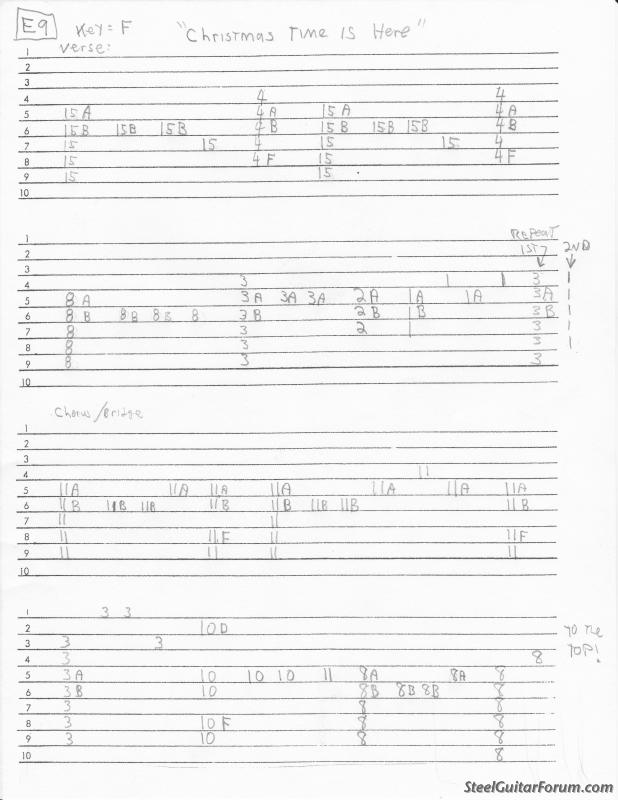 E9 Key = F "Christmas Time Is Here"
Verse:
1
2
3
4 4 4
5 15A 4A 15A 4A
6 15B 15B 15B 4B 15B 15B 15B 4B
7 15 15 4 15 15 4
8 15 4F 15 4F
9 15 15
10
REPEAT
1ST 2ND
1
2
3
4 3 1 1 3 1
5 8A 3A 3A 3A 2A 1A 1A 3A 1
6 8B 8B 8B 8 3B 2B 1B 3B 1
7 8 3 2 1 3 1
8 8 3 3 1
9 8 3 3
10
Chorus/Bridge
1
2
3
4 11
5 11A 11A 11A 11A 11A 11A 11A
6 11B 11B 11B 11B 11B 11B 11B 11B
7 11 11
8 11 11F 11 11F
9 11 11 11 11
10
1 3 3
2 10D
3 3 3
4 3 8
5 3A 10 10 10 11 8A 8A 8
6 3B 10 8B 8B 8B 8
7 3 8 8
8 3 10F 8 8
9 3 10 8 8
10 8
TO THE
TOP!
SteelGuitarForum.com